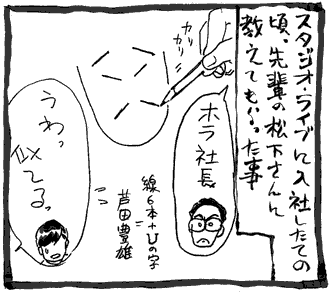 スタジオ・ライブに入社したての
頃、先輩の松下さんに
教えてもらった事
カリ
カリ
ホラ社長
線6本+Uの字
芦田豊雄
うわっ
似てるっ